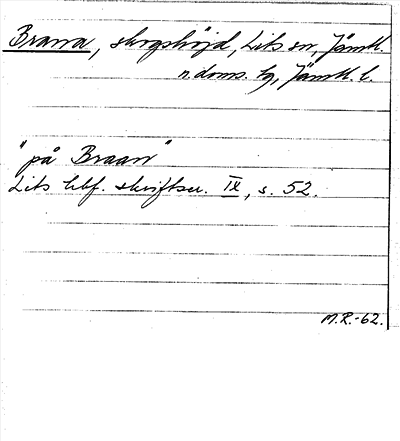 Brarra, skogshöjd, Lits sn, Jämtl.
n. doms. tg, Jämtl. l.
"på Braan"
Lits hbf. skriftser. IX, s. 52.
M.R.-62.